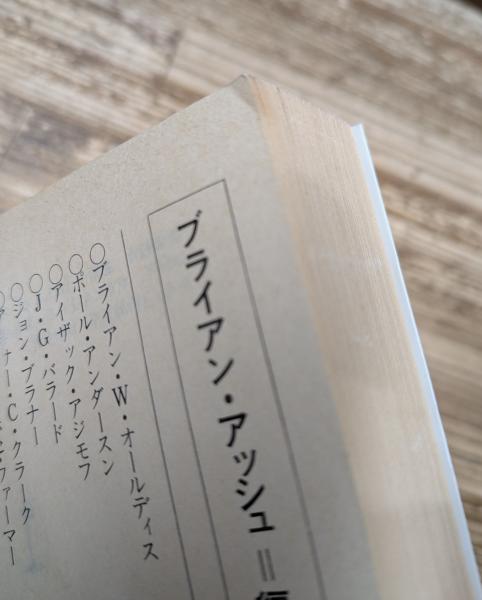 ブライアン・アッシュ=
○ブライアン・W・オールディス
○ポール・アンダースン
○アイザック・アジモフ
○J・G・バラード
○ジョン・ブラナー
・C・クラーク
ファーマー